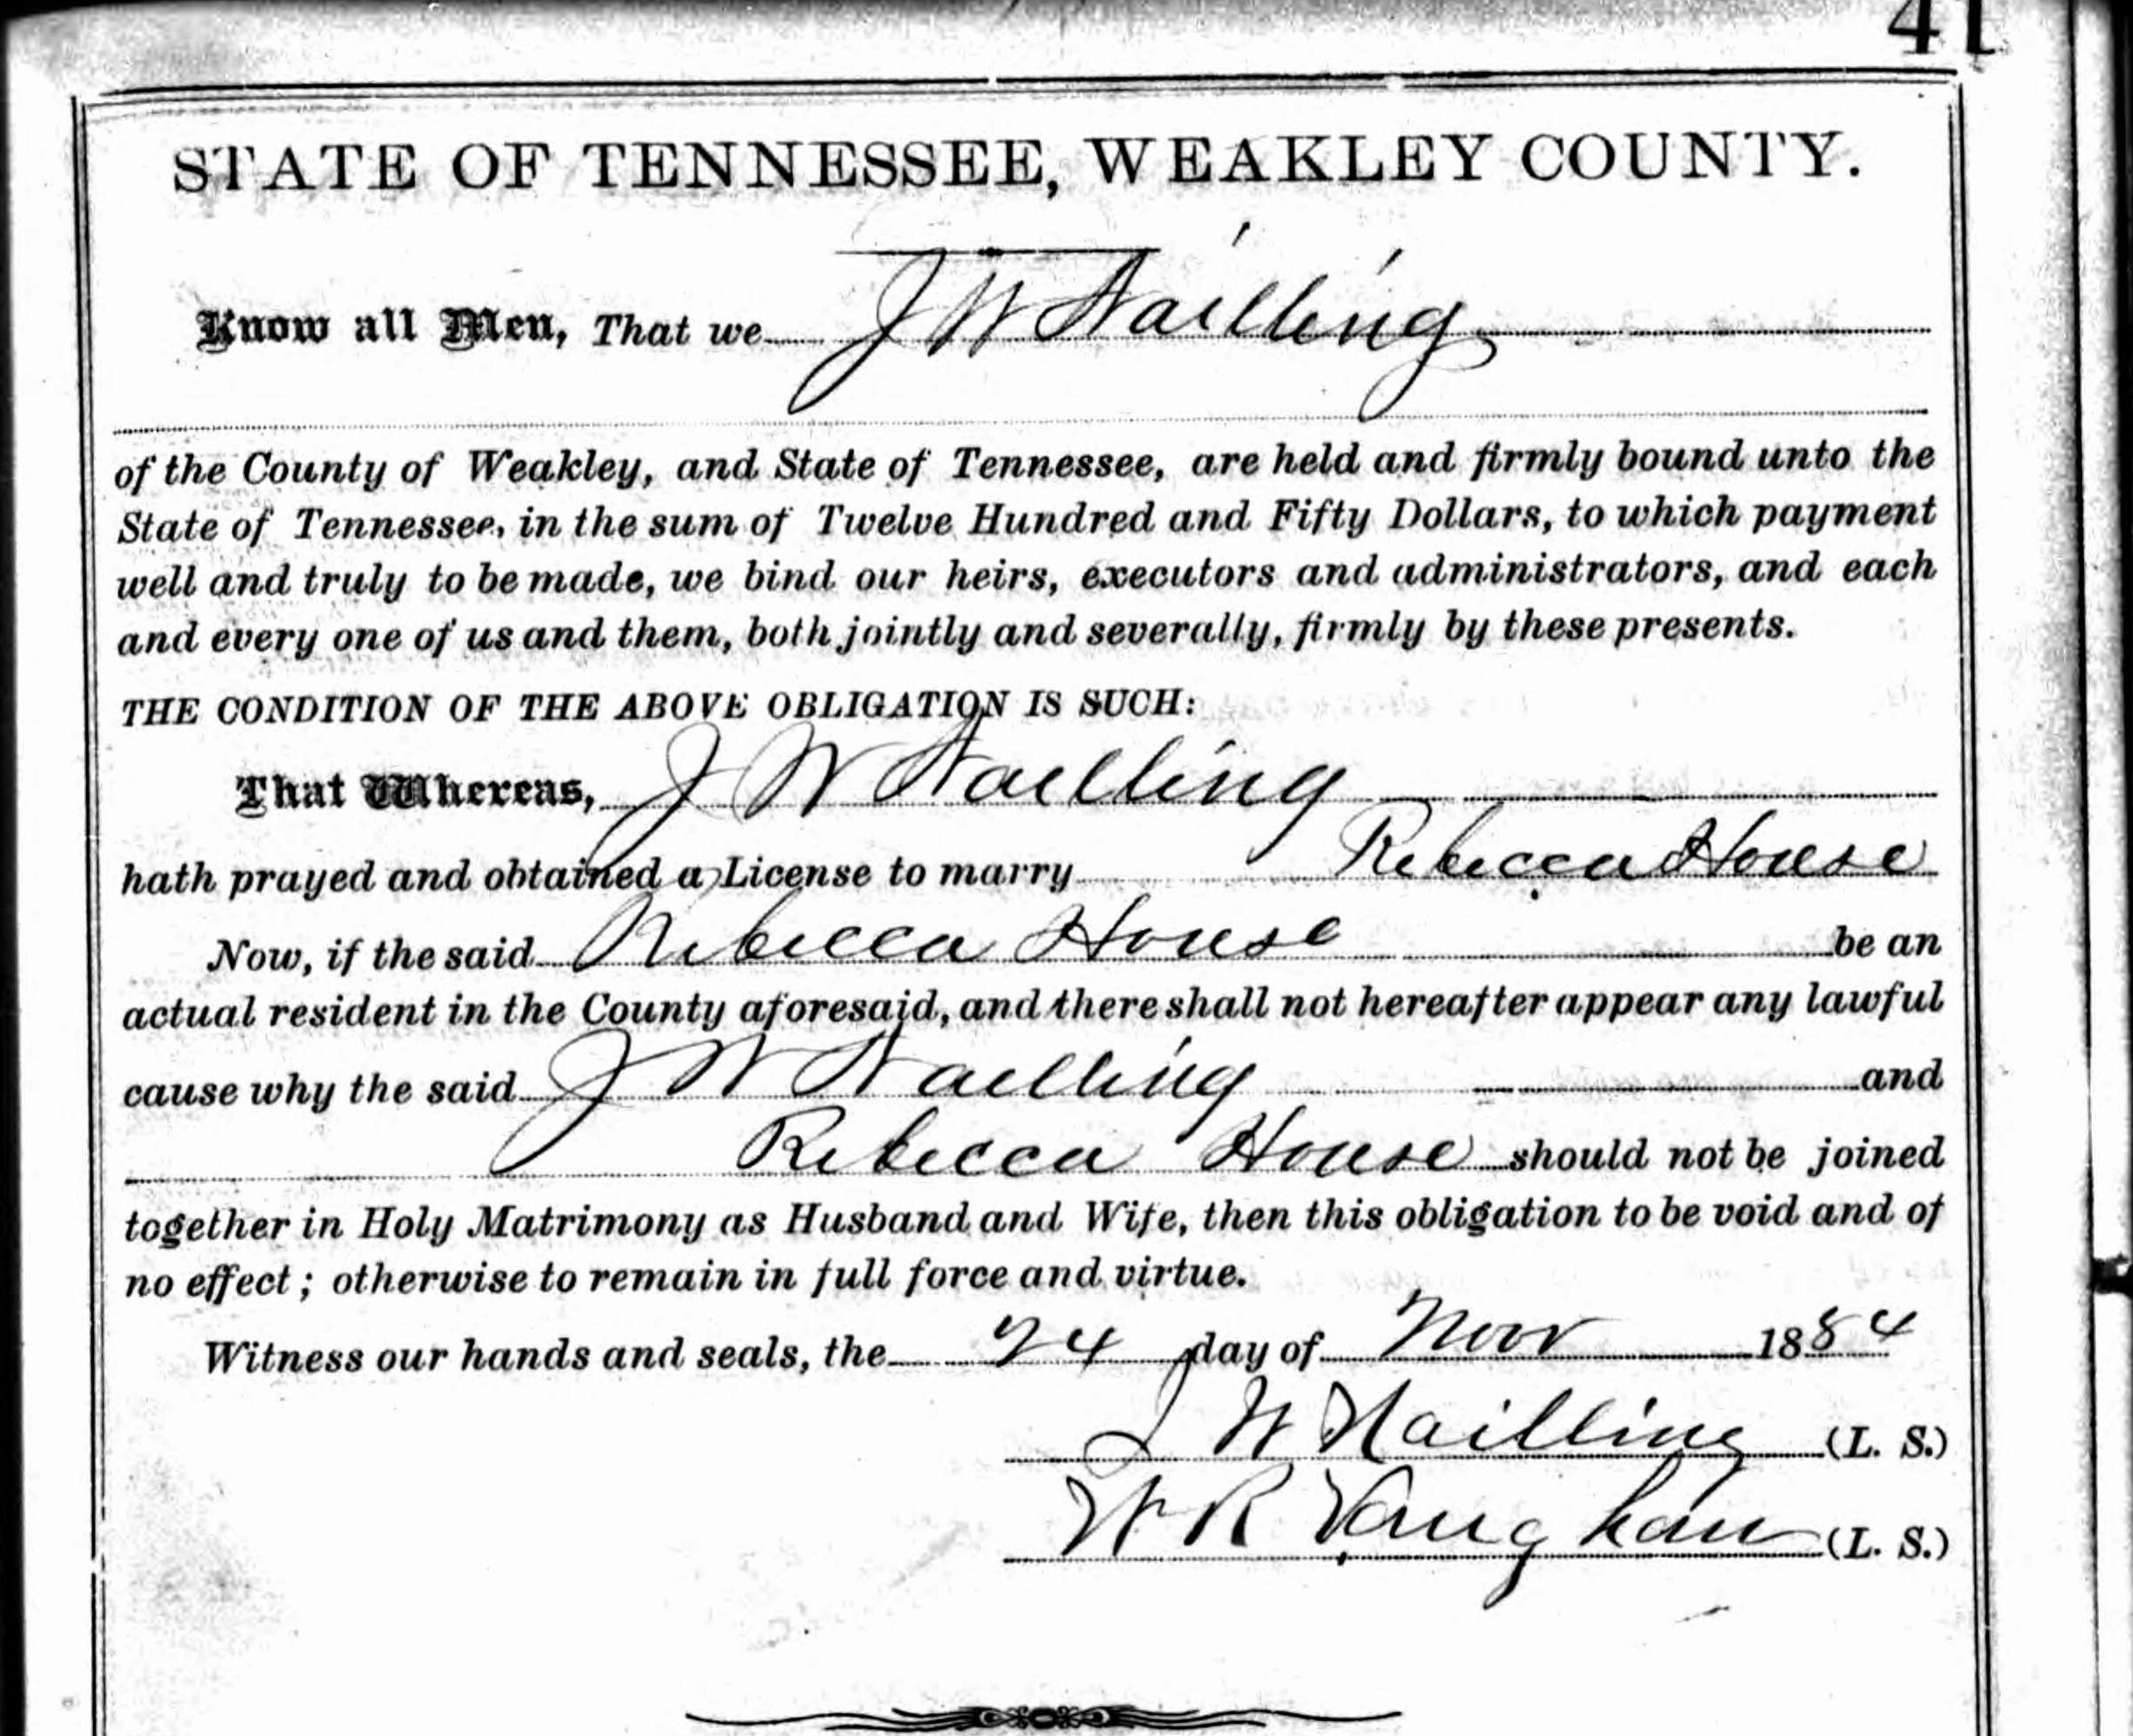 41
STATE OF TENNESSEE, WEAKLEY COUNTY.
Know all Men, That we J W Nailling
of the County of Weakley, and State of Tennessee, are held and firmly bound unto the
State of Tennessee, in the sum of Twelve Hundred and Fifty Dollars, to which payment
well and truly to be made, we bind our heirs, executors and administrators, and each
and every one of us and them, both jointly and severally, firmly by these presents.
THE CONDITION OF THE ABOVE OBLIGATION IS SUCH:
That Whereas, J W Nailling
hath prayed and obtained a License to marry Rebecca House
Now, if the said Rebecca House be an
actual resident in the County aforesaid, and there shall not hereafter appear any lawful
cause why the said J W Nailling and
Rebecca House should not be joined
together in Holy Matrimony as Husband and Wife, then this obligation to be void and of
no effect; otherwise to remain in full force and virtue.
Witness our hands and seals, the 24 day of Nov 1884
J W Nailling (L. S.)
W R Vaughan (L. S.)